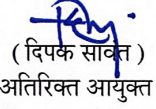 ( दिपक सावंत )
अतिरिक्त आयुक्त